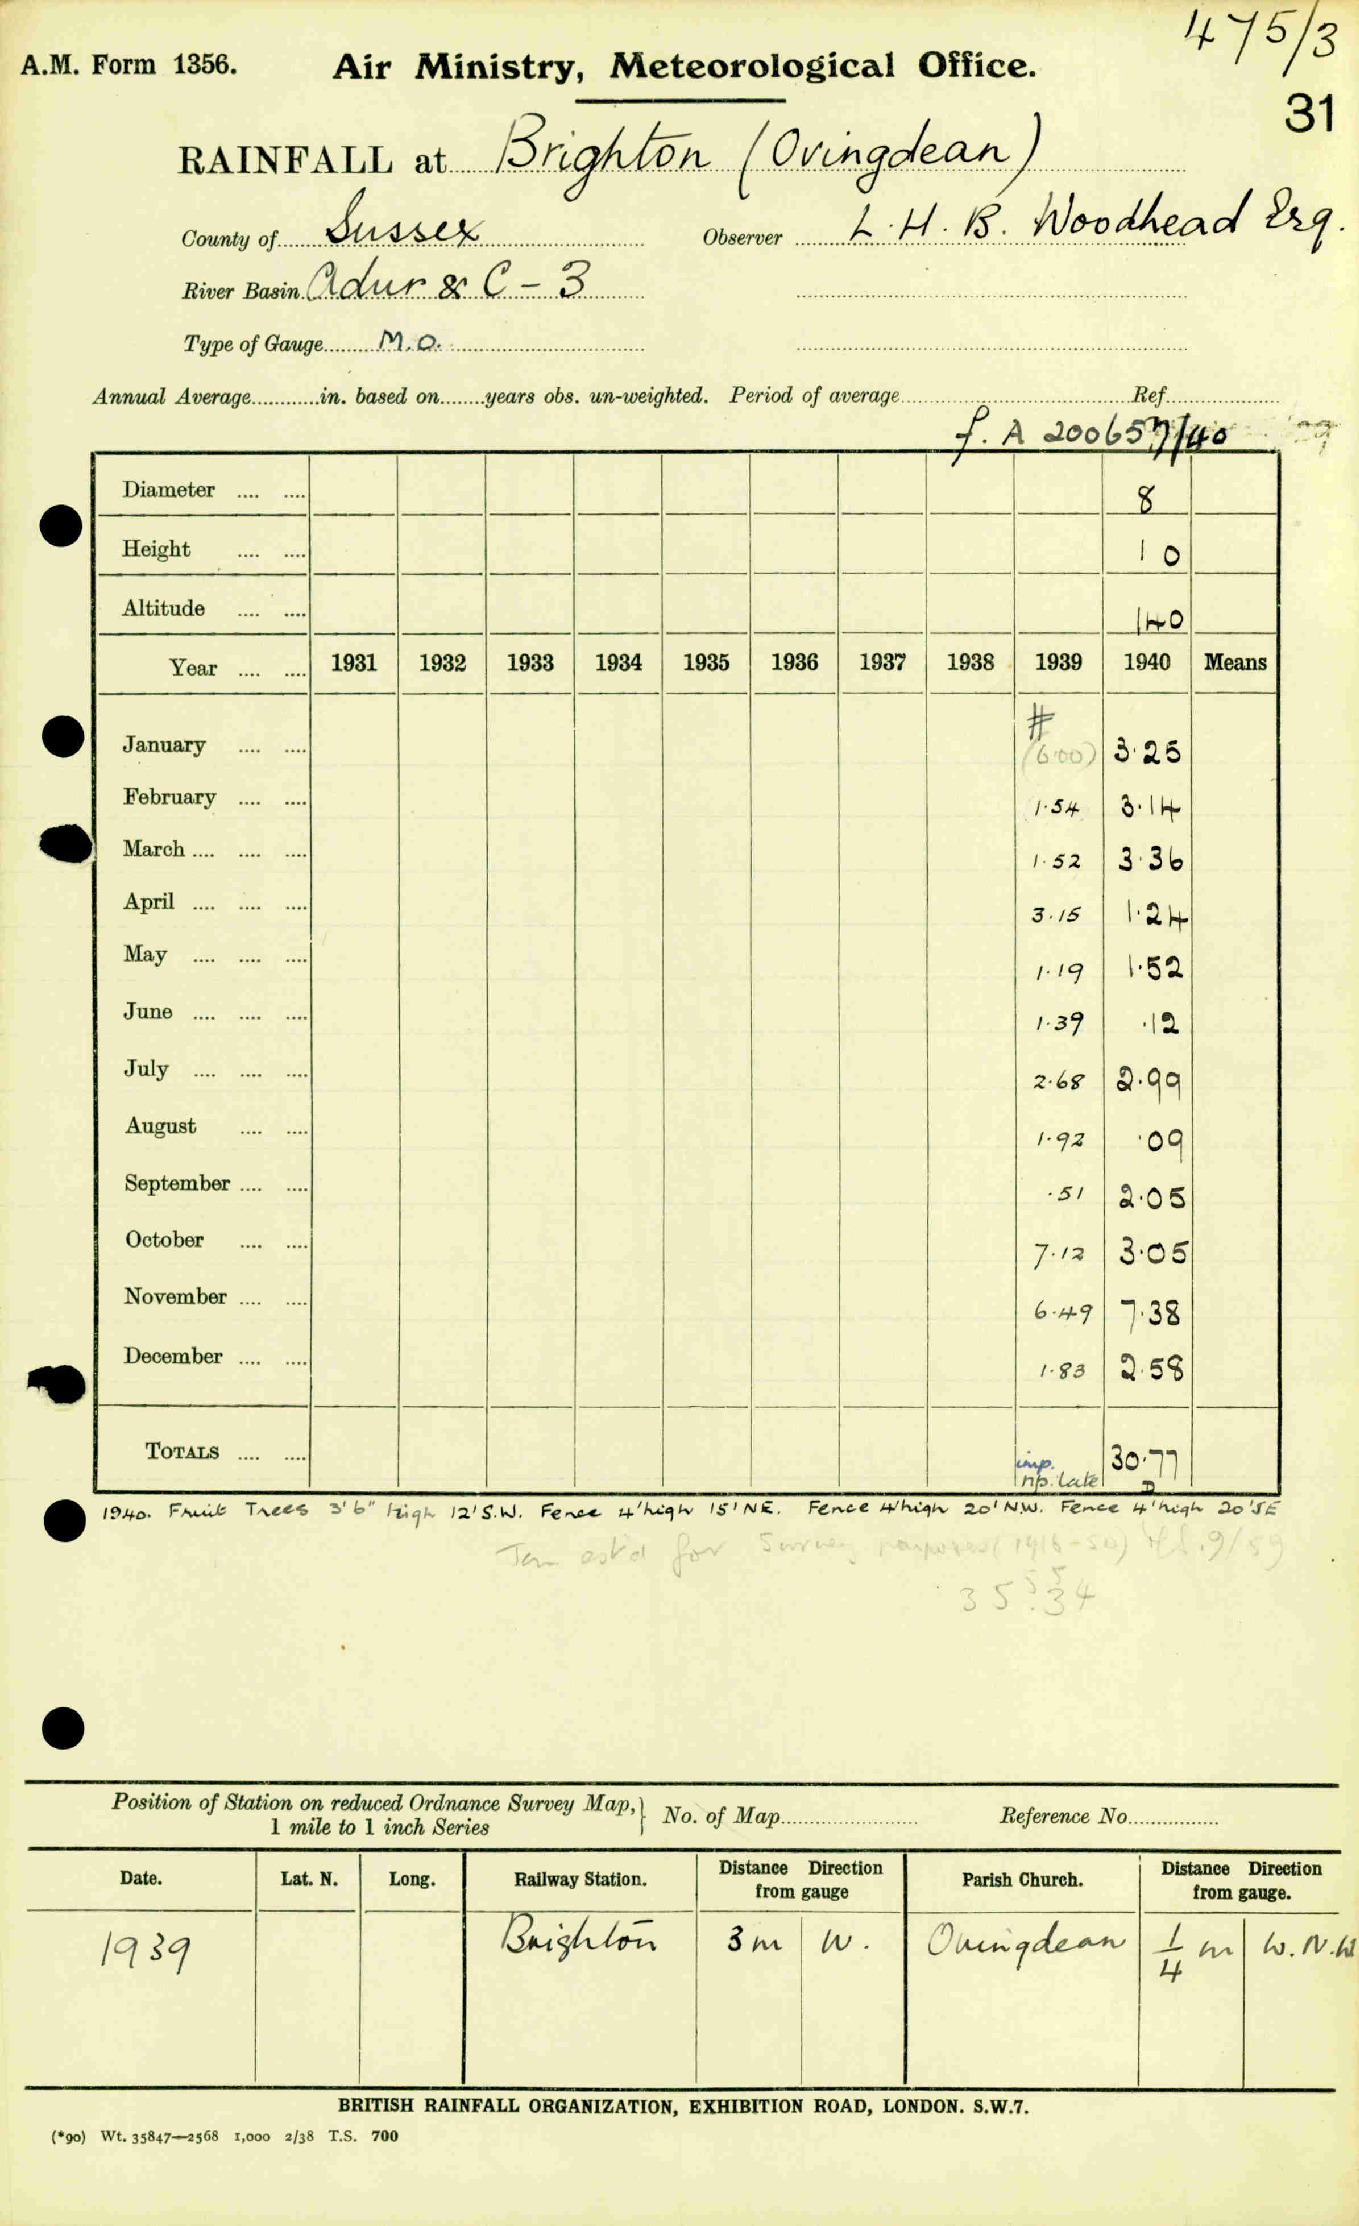 475/3
A.M. Form 1356. Air Ministry, Meteorological Office.
31
RAINFALL at Brighton (Ovingdean)
County of Sussex Observer L. H. B. Woodhead Esq.
River Basin Adur & C - 3
Type of Gauge M.O.
Annual Average in. based on years obs. un-weighted. Period of average Ref
f. A 200657/40
Diameter 8
Height 1 0
Altitude 140
Year 1931 1932 1933 1934 1935 1936 1937 1938 1939 1940 Means
#
January (6.00) 3.25
February 1.54 3.14
March 1.52 3.36
April 3.15 1.24
May 1.19 1.52
June 1.39 .12
July 2.68 2.99
August 1.92 .09
September .51 2.05
October 7.12 3.05
November 6.49 7.38
December 1.83 2.58
TOTALS imp. 30.77
np. late
1940. Fruit Trees 3'6" high 12' S.W. Fence 4' high 15' NE. Fence 4' high 20' N.W. Fence 4' high 20' SE
Jan est'd for Survey purposes (1916-50) 9/59
35.34
Position of Station on reduced Ordnance Survey Map, 1 mile to 1 inch Series } No. of Map Reference No.
Date. Lat. N. Long. Railway Station. Distance Direction from gauge Parish Church. Distance Direction from gauge.
1939 Brighton 3 m W. Ovingdean 1/4 m W.N.W
BRITISH RAINFALL ORGANIZATION, EXHIBITION ROAD, LONDON. S.W.7.
(*90) Wt. 35847—2568 1,000 2/38 T.S. 700